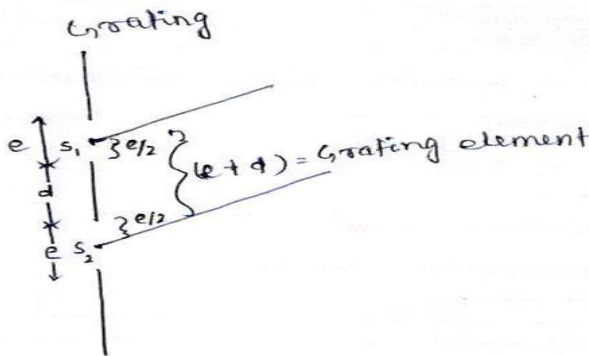 Grating
e S₁ } e/2
d
(e + d) = Grating element
} e/2
e S₂